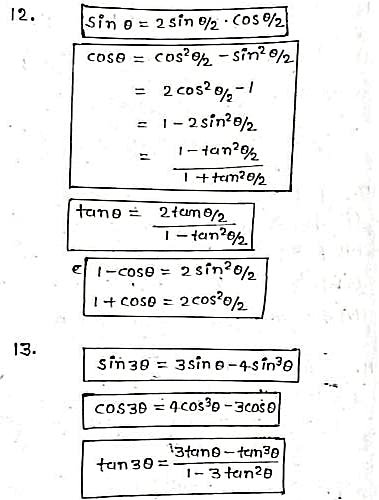 12. sin θ = 2 sin θ/2 · cos θ/2
cos θ = cos²θ/2 - sin²θ/2
= 2 cos²θ/2 - 1
= 1 - 2 sin²θ/2
= (1 - tan²θ/2)/(1 + tan²θ/2)
tan θ = (2 tan θ/2)/(1 - tan²θ/2)
1 - cos θ = 2 sin²θ/2
1 + cos θ = 2 cos²θ/2
13.
sin 3θ = 3 sin θ - 4 sin³θ
cos 3θ = 4 cos³θ - 3 cos θ
tan 3θ = (3 tan θ - tan³θ)/(1 - 3 tan²θ)